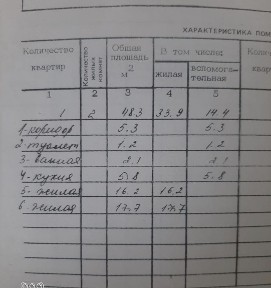 ХАРАКТЕРИСТИКА ПОМ
Количество квартир | Количество жилых комнат | Общая площадь м2 | В том числе: жилая | вспомога-тельная
1 2 3 4 5
1 2 48.3 33.9 14.4
1-коридор 5.3 5.3
2-туалет 1.2 1.2
3-ванная 2.1 2.1
4-кухня 5.8 5.8
5-жилая 16.2 16.2
6 жилая 17.7 17.7